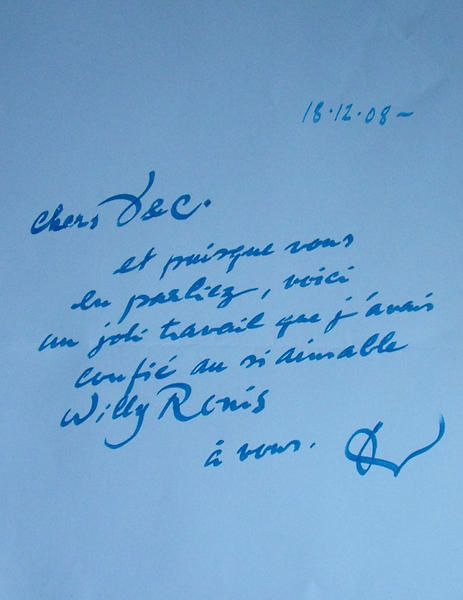 18.12.08~
Chers D&C.
et puisque vous
en parliez, voici
un joli travail que j'avais
confié au si aimable
Willy Ronis
à vous.